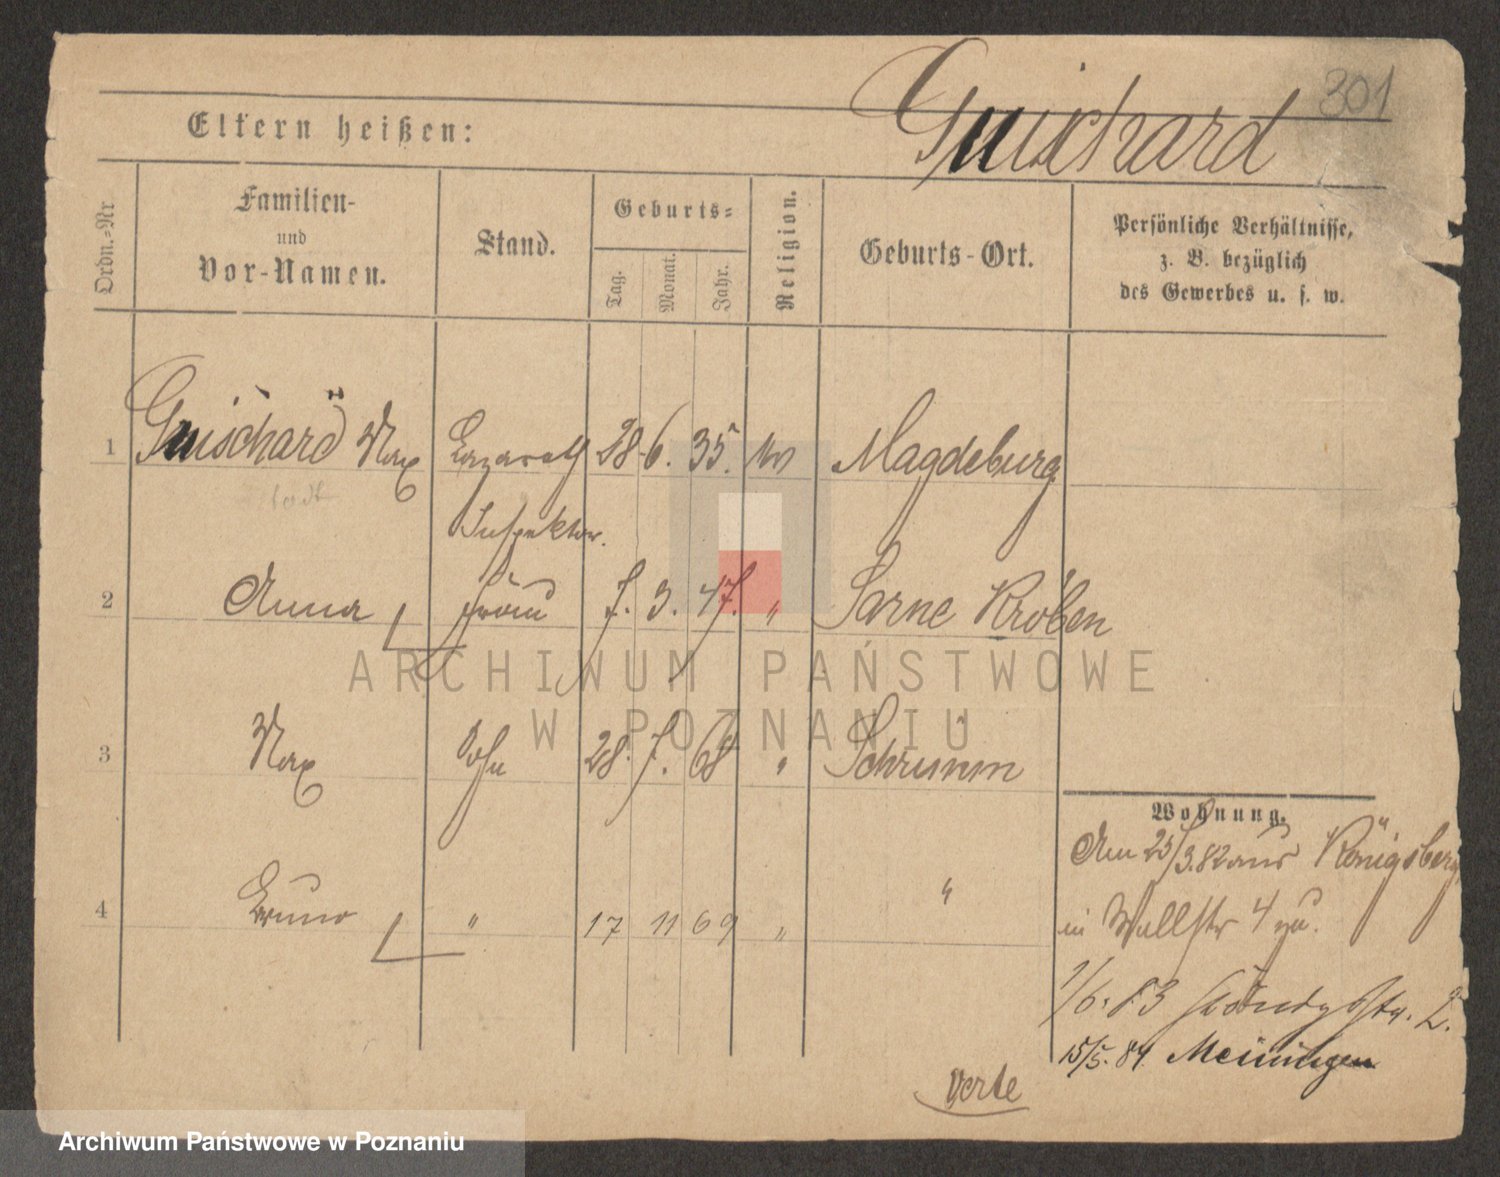 301
Guischard
Eltern heißen:
Ordn.-Nr.
Familien-
und
Vor-Namen.
Stand.
Geburts-
Tag.
Monat.
Jahr.
Religion.
Geburts-Ort.
Persönliche Verhältnisse,
z. B. bezüglich
des Gewerbes u. s. w.
1 Guischard Max Lazareth 28. 6. 35. Magdeburg
todt
Inspektor.
2 Anna Frau 7. 3. 47. " Sarne Kröben
3 Max Sohn 28. 7. 68 " Schrimm
4 Bruno " 17 11 69 " "
Wohnung.
Am 25/3.82 aus Königsberg
in Wallstr 4 zu.
1/6. 83 2.
15/5. 84 Meiningen
Verte
ARCHIWUM PAŃSTWOWE
W POZNANIU
Archiwum Państwowe w Poznaniu